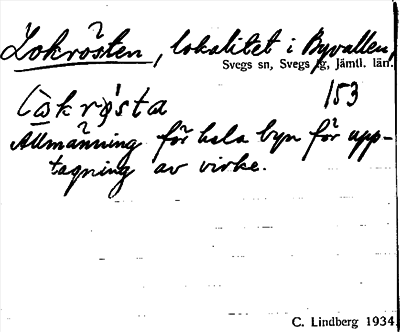 Lokrösten, lokalitet i Byvallen,
Svegs sn, Svegs tg, Jämtl. län.
153
Allmänning för hela byn för upp-
tagning av virke.
C. Lindberg 1934